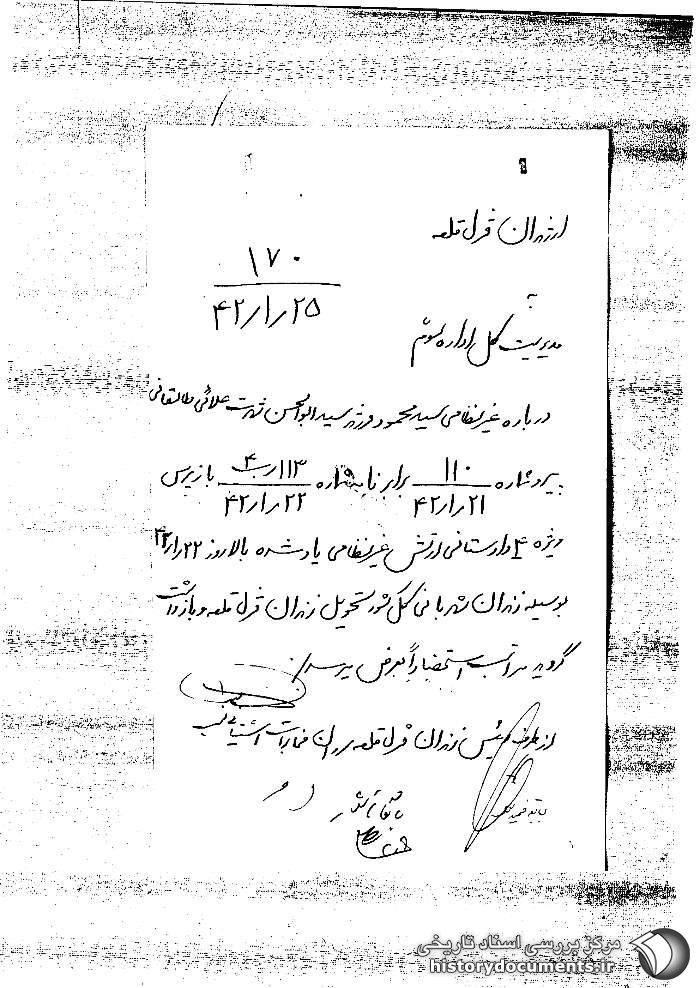 از زندان قزل قلعه
۱۷۰
۴۲/۱/۲۵
به
مدیریت کل اداره سوم
درباره غیرنظامی سید محمود فرزند سید ابوالحسن شهرت علائی طالقانی
پیرو شماره ۱۱۰ ۴۲/۱/۲۱ برابر نامه شماره ۱۱۳/ب ۴ ۴۲/۱/۲۲ بازپرس
ویژه ۴ دادستانی ارتش غیرنظامی یاد شده بالا روز ۴۲/۱/۲۲
بوسیله زندان شهربانی کل کشور تحویل زندان قزل قلعه و بازداشت
گردید مراتب استحضاراً بعرض میرسد
از طرف رئیس زندان قزل قلعه
مرکز بررسی اسناد تاریخی
historydocuments.ir